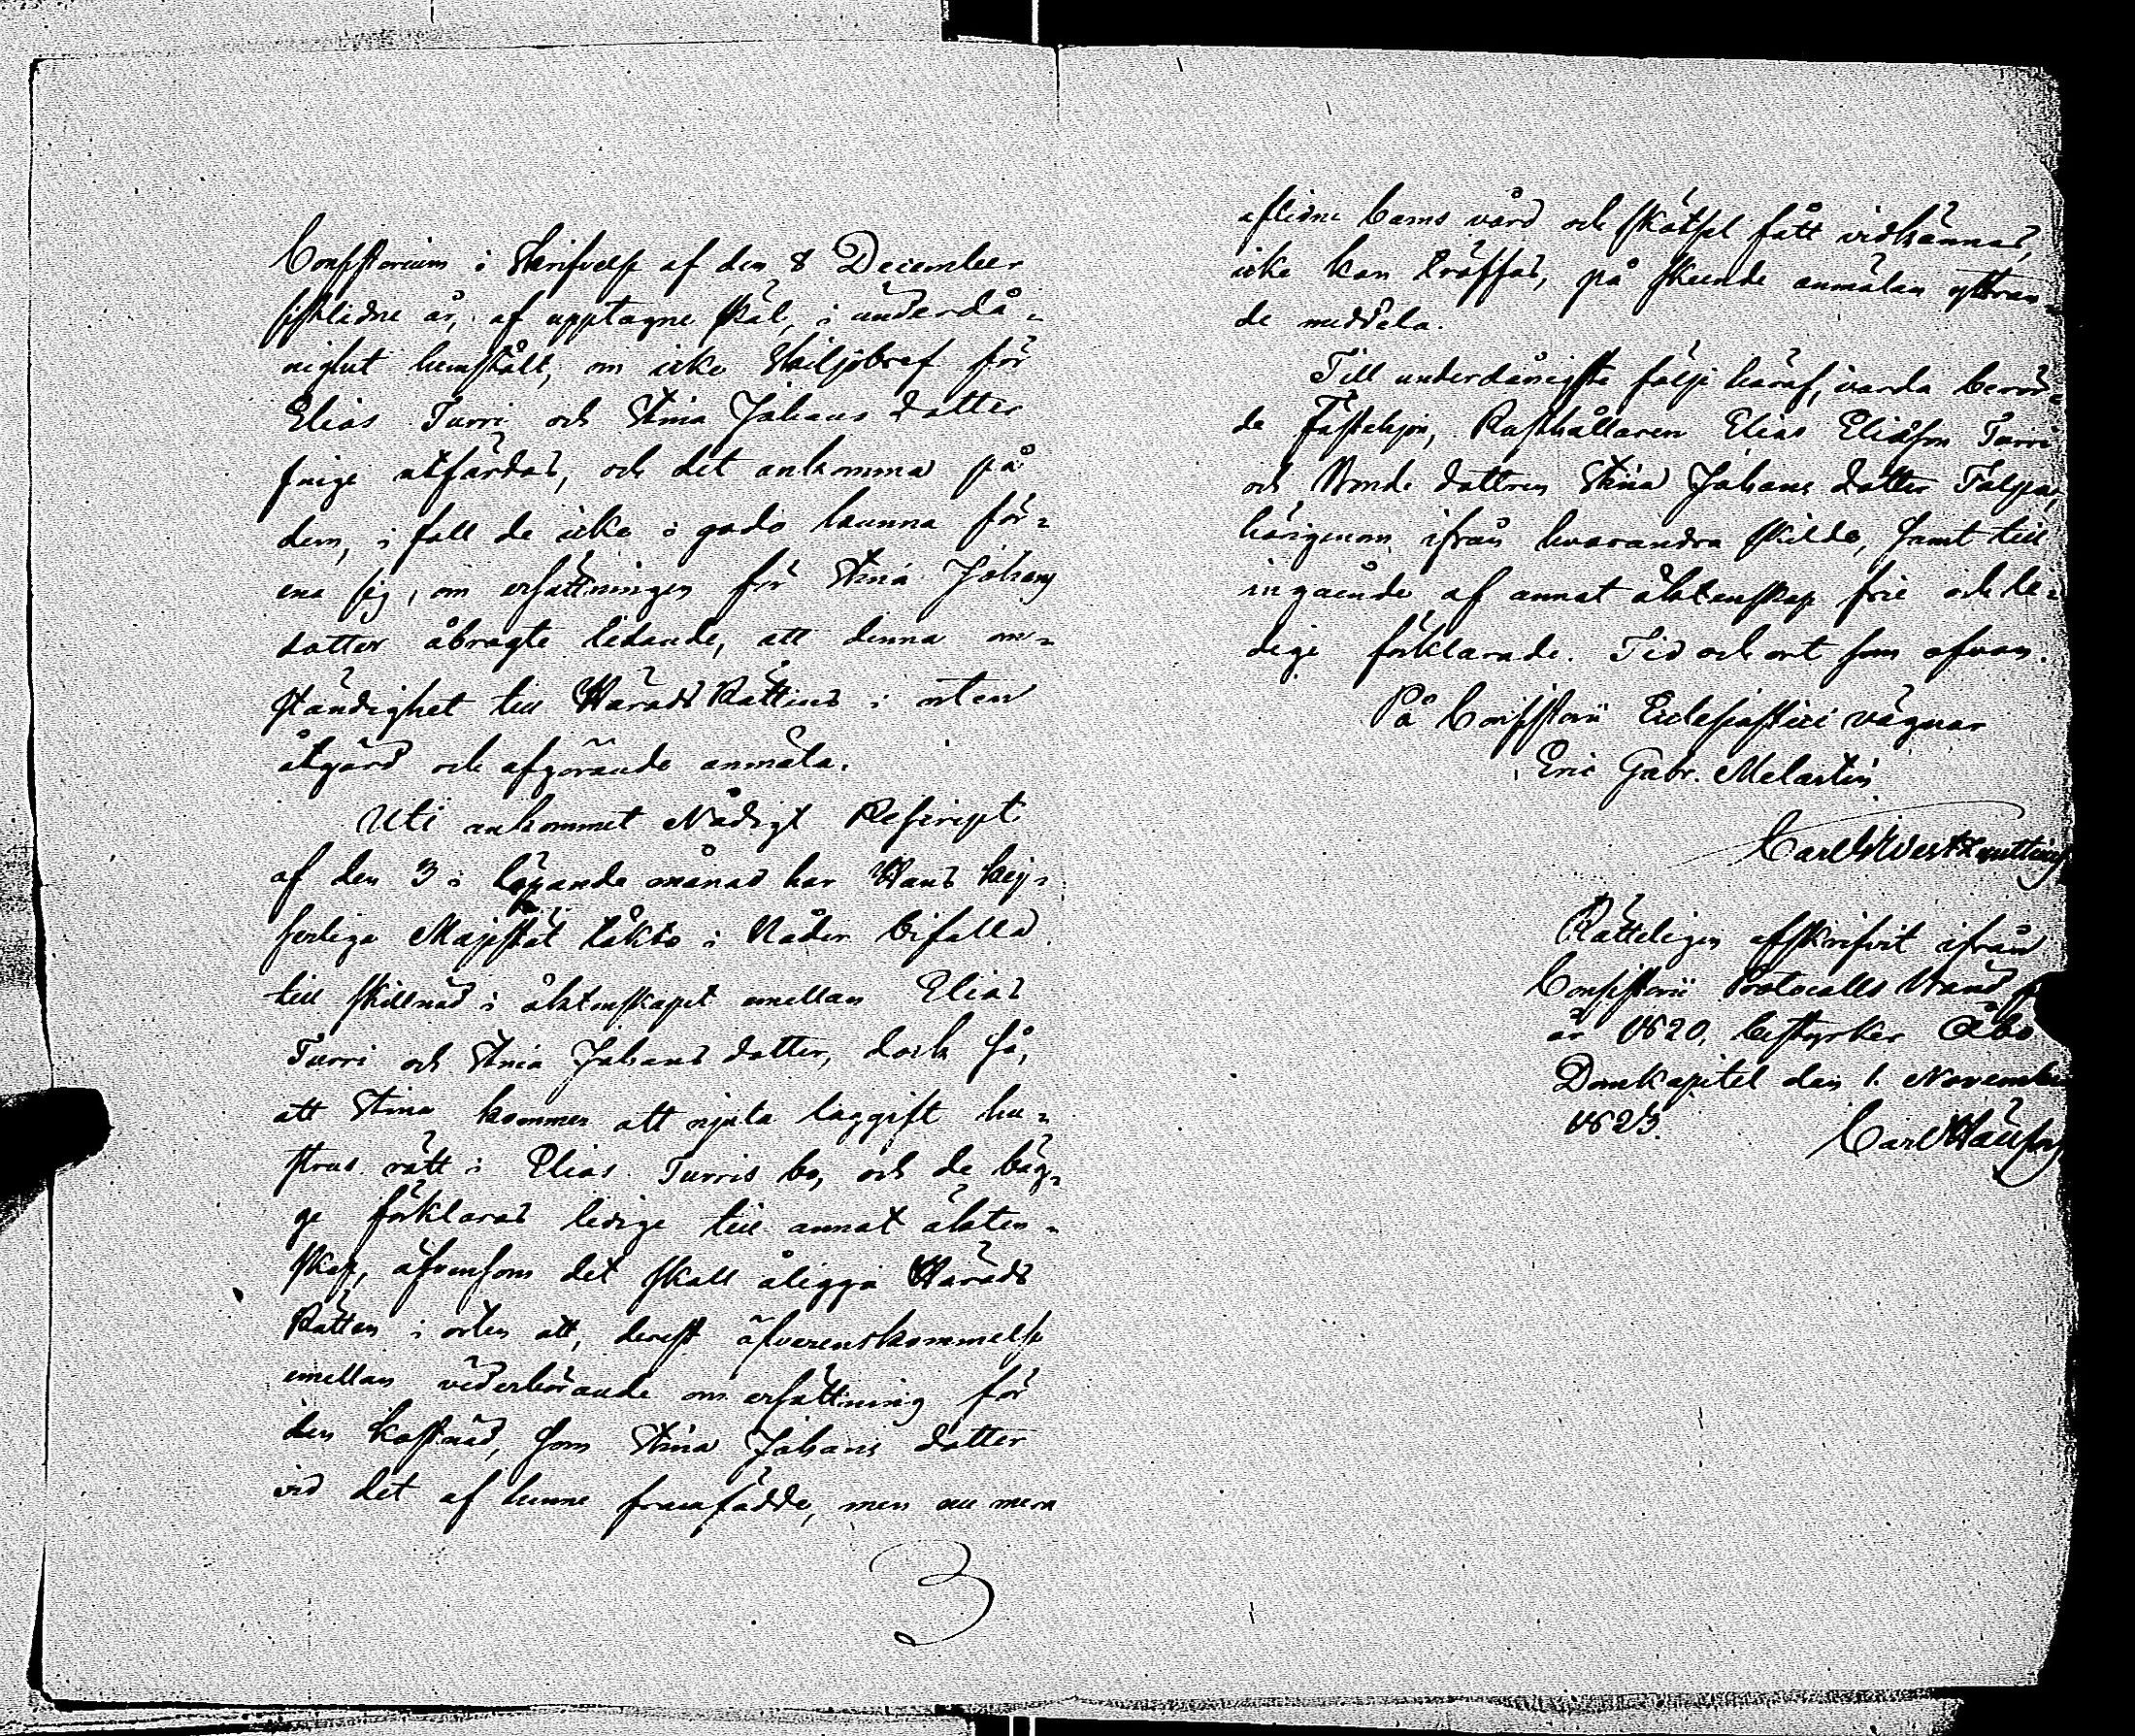 Consistorium i Skrifvelse af den 8 December
sistlidne år, af upptagne skäl, i underdå-
nighet hemstält, om icke Skiljobref för
Elias Turri och Stina Johans dotter
finge utfärdas, och det ankomma på
dem, i fall de icke i godo kunna för-
ena sig, om ersättningen för Stina Johans
dotter åbragte lidande, att denna om-
ständighet till Härads Rättens i orten
åtgärd och afgörande anmäla.
Uti ankommet Nådigt Rescript
af den 3 i löpande månad har Hans Kej-
serliga Majestät täkts i Nåder bifalla
till skillnad i äktenskapet emellan Elias
Turri och Stina Johans dotter, dock så,
att Stina kommer att njuta laggift hu-
strus rätt i Elias Turris bo, och de bäg-
ge förklaras ledige till annat äkten-
skap, äfvensom det skall åligga Härads
Rätten i orten att, derest öfverenskommelse
emellan vederbörande om ersättning för
den kostnad, som Stina Johans dotter
vid det af henne framfödde, men nu mera
3
aflidne barns vård och skötsel fått vidkännas,
icke kan träffas, på skeende anmälan yttran-
de meddela.
Till underdånigste följe häraf, varda berör-
de Fästehjon, Rusthållaren Elias Eliasson Turri
och Bonde dottren Stina Johans dotter
härigenom ifrån hvarandra skilde, samt till
ingående af annat äktenskap frie och le-
dige förklarade. Tid och ort som ofvan.
På Consistorii Ecclesiastici vägnar
Eric Gabr. Melartin
Carl
Rätteligen afskrifvit ifrån
Consistorii Protocolls
år 1820, bestyrker Åbo
Domkapitel den 1. November
1823.
Carl